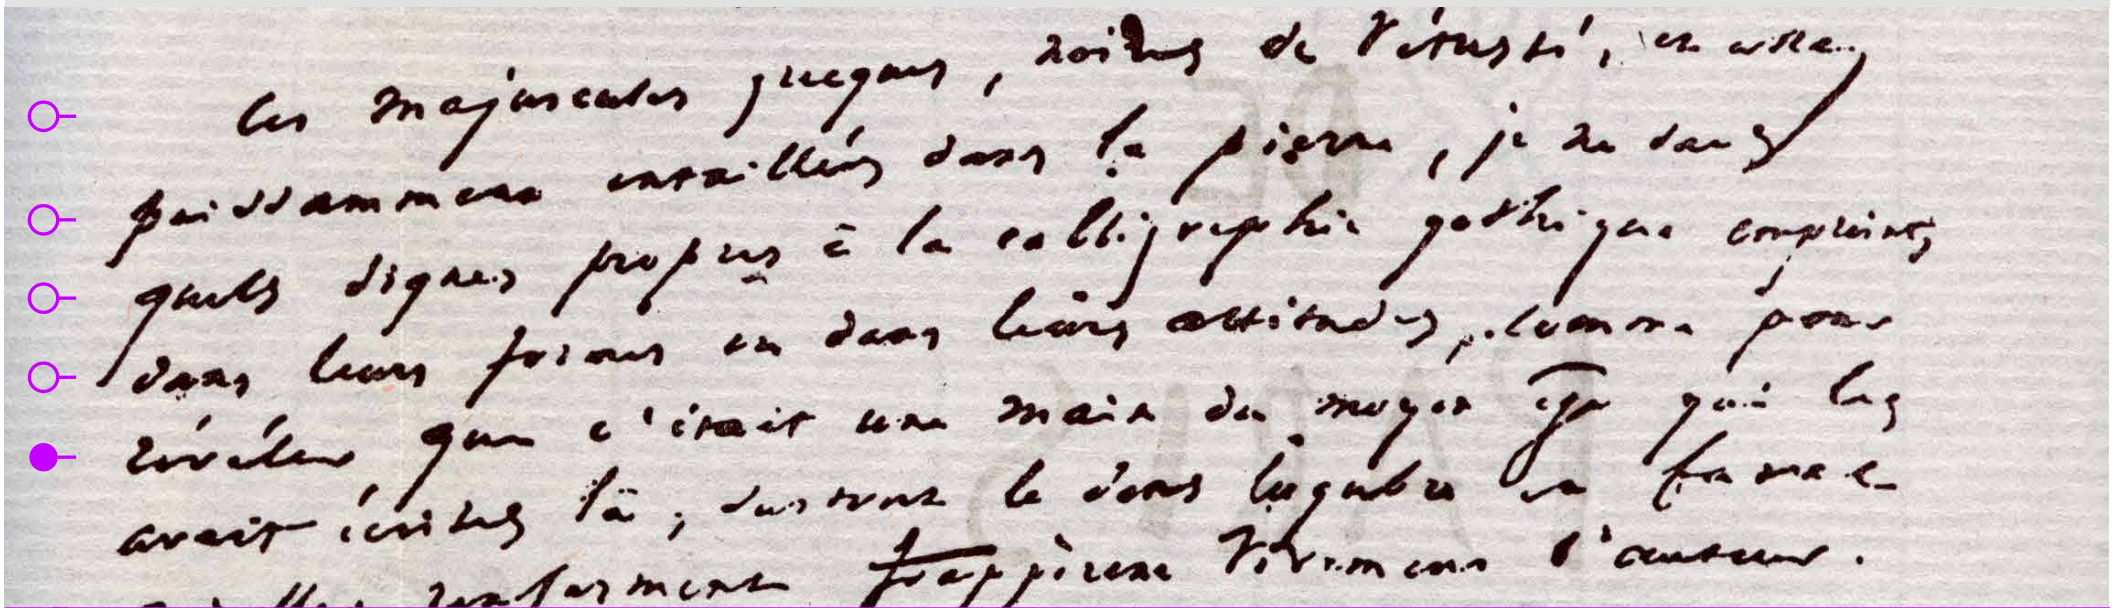 Ces majuscules grecques, noires de vétusté, et assez
puissamment entaillées dans la pierre, je ne sais
quels signes propres à la calligraphie gothique empreints
dans leurs formes et dans leurs attitudes, comme pour
révéler que c'était une main du moyen âge qui les
avait écrites là, surtout le sens lugubre et fatal
qu'elles renferment frappèrent vivement l'auteur.